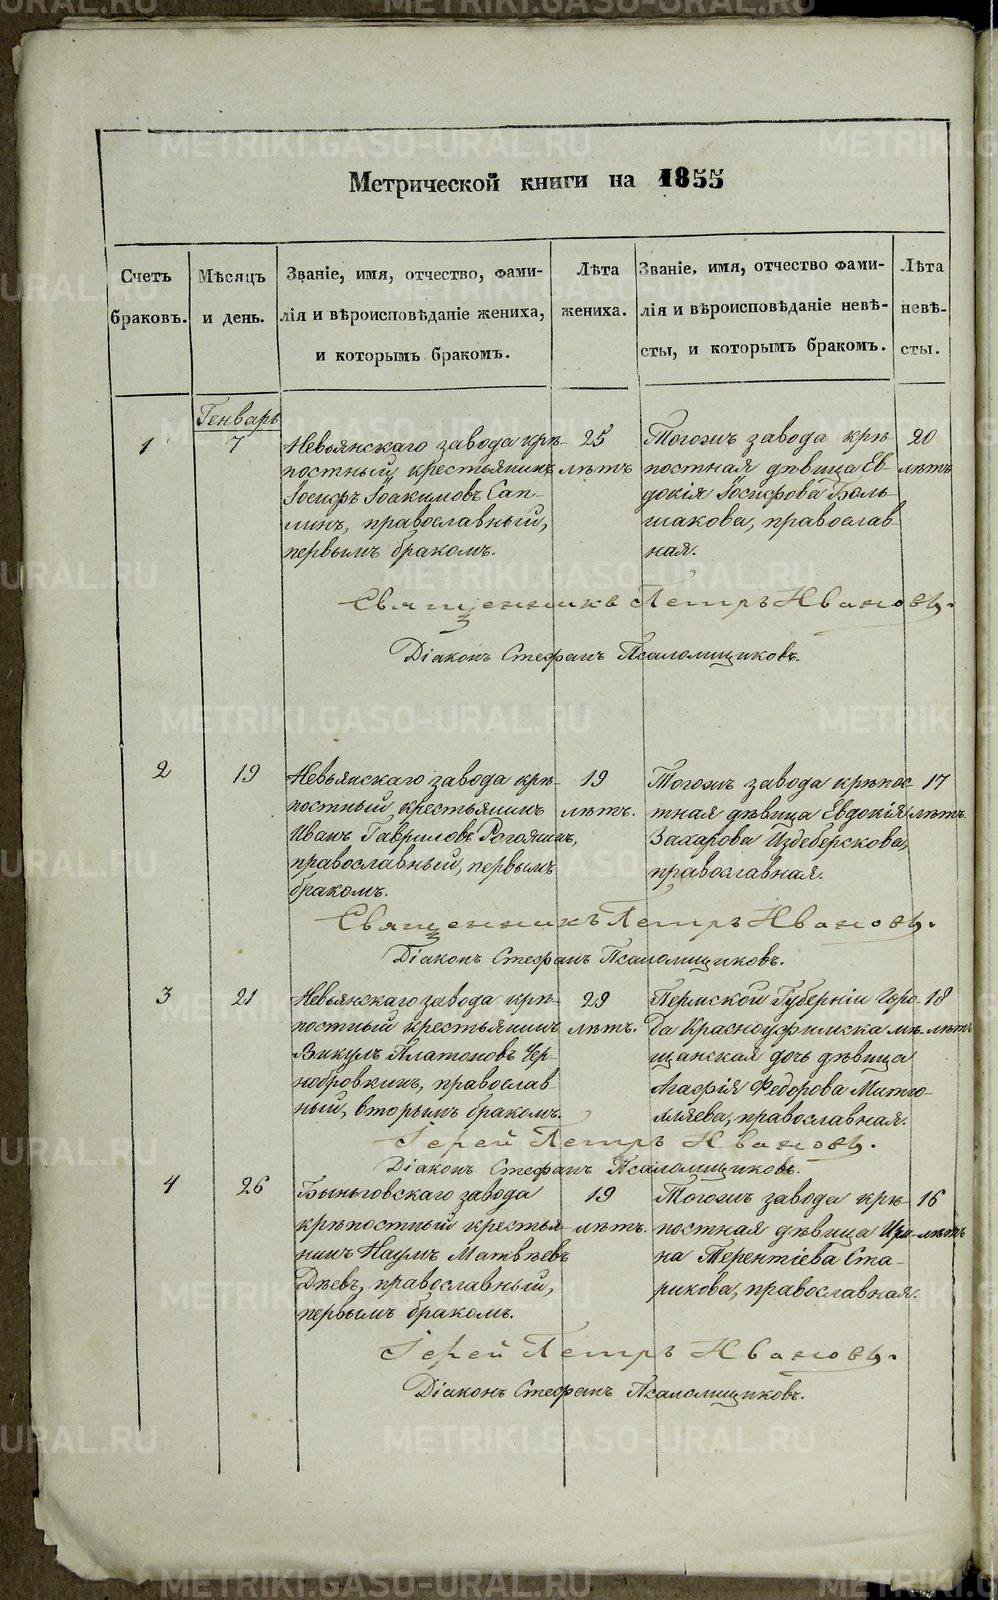 Метрической книги на 1855
Счетъ браковъ.
Мѣсяцъ и день.
Званіе, имя, отчество, фами-
лія и вѣроисповѣданіе жениха,
и которымъ бракомъ.
Лѣта жениха.
Званіе, имя, отчество фами-
лія и вѣроисповѣданіе невѣ-
сты, и которымъ бракомъ.
Лѣта невѣ-
сты.
Генварь
1
7
Невьянскаго завода крѣ-
постный крестьянинъ
Іосифъ Іоакимовъ Сап-
линъ, православный,
первымъ бракомъ.
25
лѣтъ
Тогожъ завода крѣ
постная дѣвица Ев-
докія Іосифова Боль-
шакова, православ
ная.
20
лѣтъ
Священникъ Петръ Ивановъ.
Діаконъ Стефанъ Псаломщиковъ.
2
19
Невьянскаго завода крѣ-
постный крестьянинъ
Иванъ Гавриловъ
православный, первымъ
бракомъ.
19
лѣтъ.
Тогожъ завода крѣпос
тная дѣвица Евдокія
Захарова Издеберскова,
православная.
17
лѣтъ.
Священникъ Петръ Ивановъ.
Діаконъ Стефанъ Псаломщиковъ.
3
21
Невьянскаго завода крѣ-
постный крестьянинъ
Викулъ Платоновъ Чер-
нобровкинъ, православ
ный, вторымъ бракомъ.
29
лѣтъ.
Пермской Губерніи Горо-
да Красноуфимска мѣ-
щанская дочь дѣвица
Агафія Федорова
православная.
18
лѣтъ
Іерей Петръ Ивановъ.
Діаконъ Стефанъ Псаломщиковъ.
4
26
Быньговскаго завода
крѣпостный крестья-
нинъ Наумъ Матвѣевъ
Дѣевъ, православный,
первымъ бракомъ.
19
лѣтъ.
Тогожъ завода крѣ-
постная дѣвица Ири-
на Терентіева Ста-
рикова, православная.
16
лѣтъ
Іерей Петръ Ивановъ.
Діаконъ Стефанъ Псаломщиковъ.
METRIKI.GASO-URAL.RU